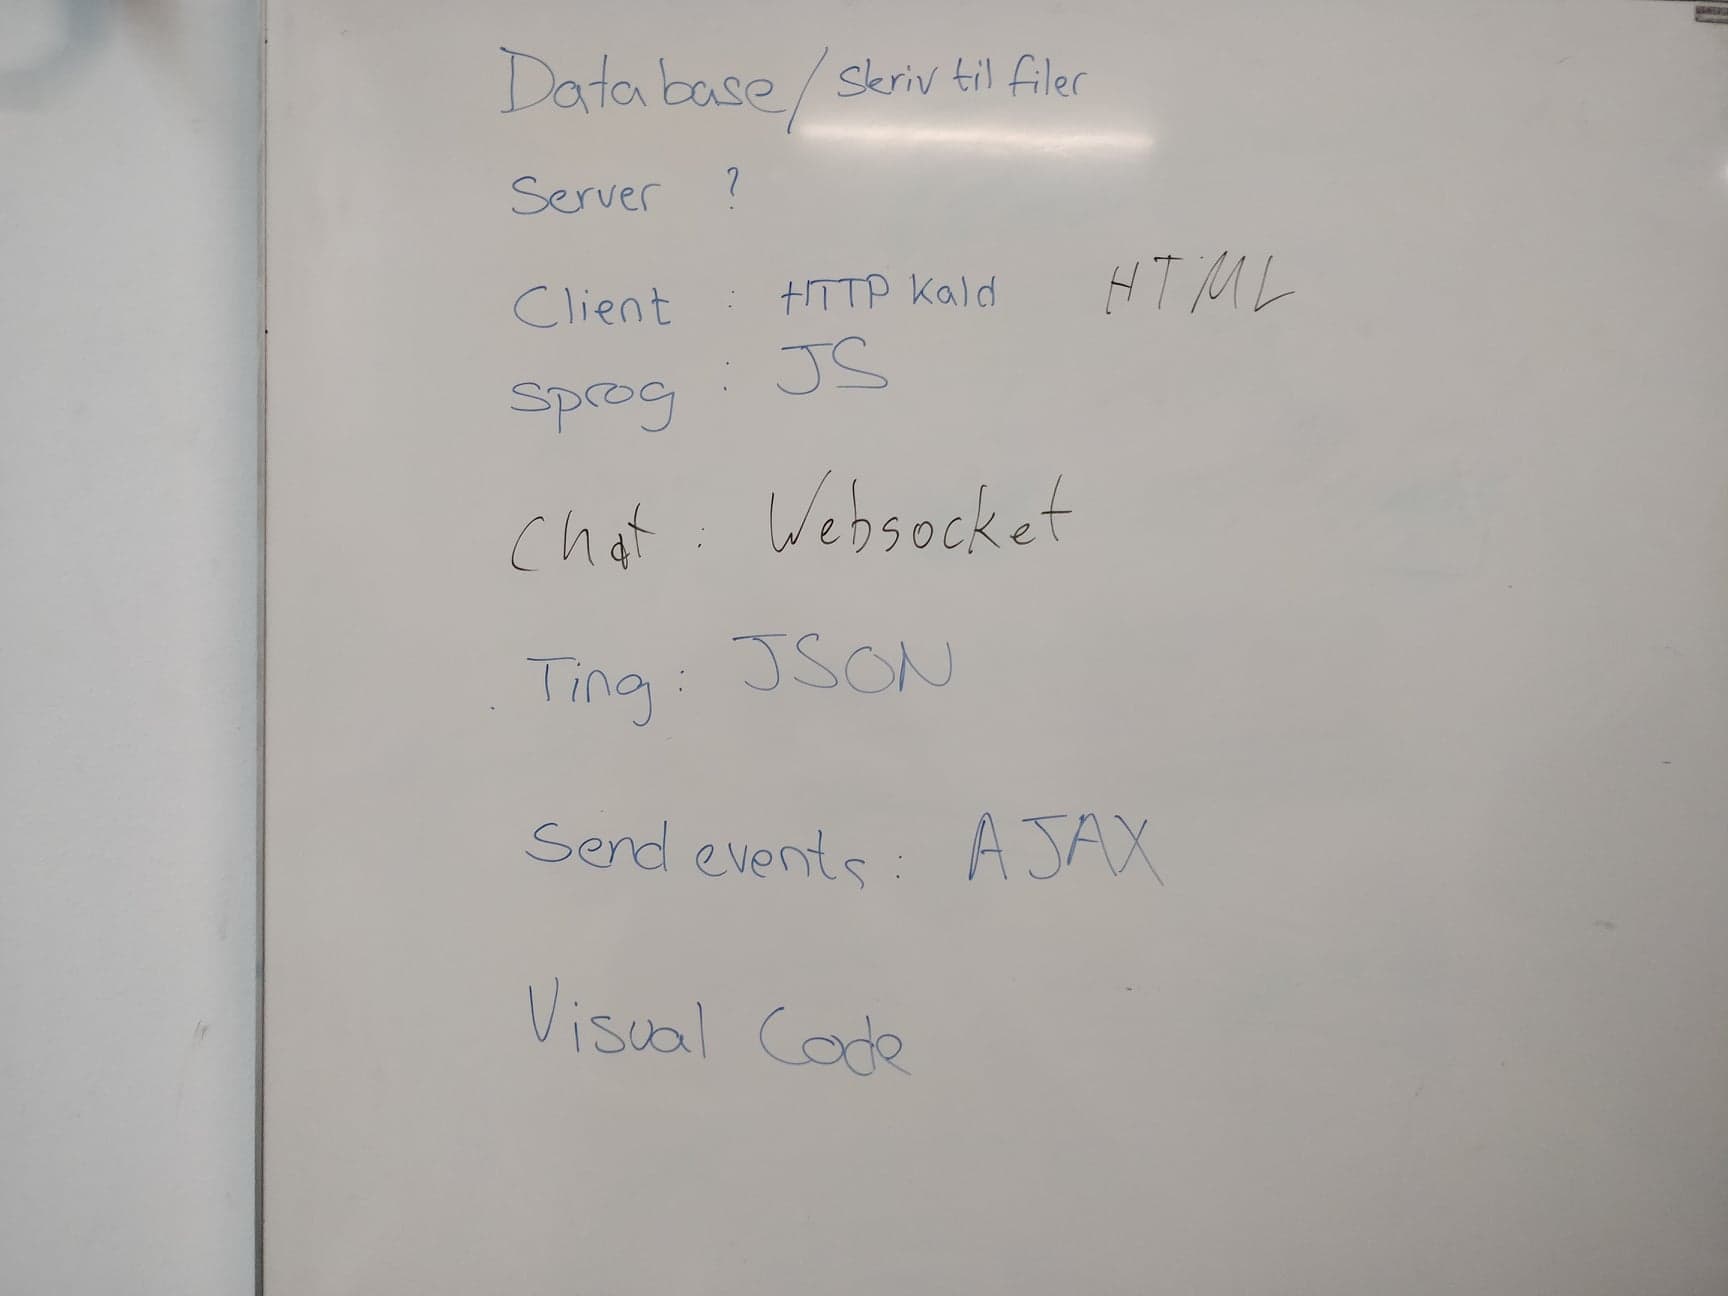 Database/ Skriv til filer
Server ?
Client : HTTP Kald HTML
Sprog : JS
Chat : Websocket
Ting : JSON
Send events : AJAX
Visual Code